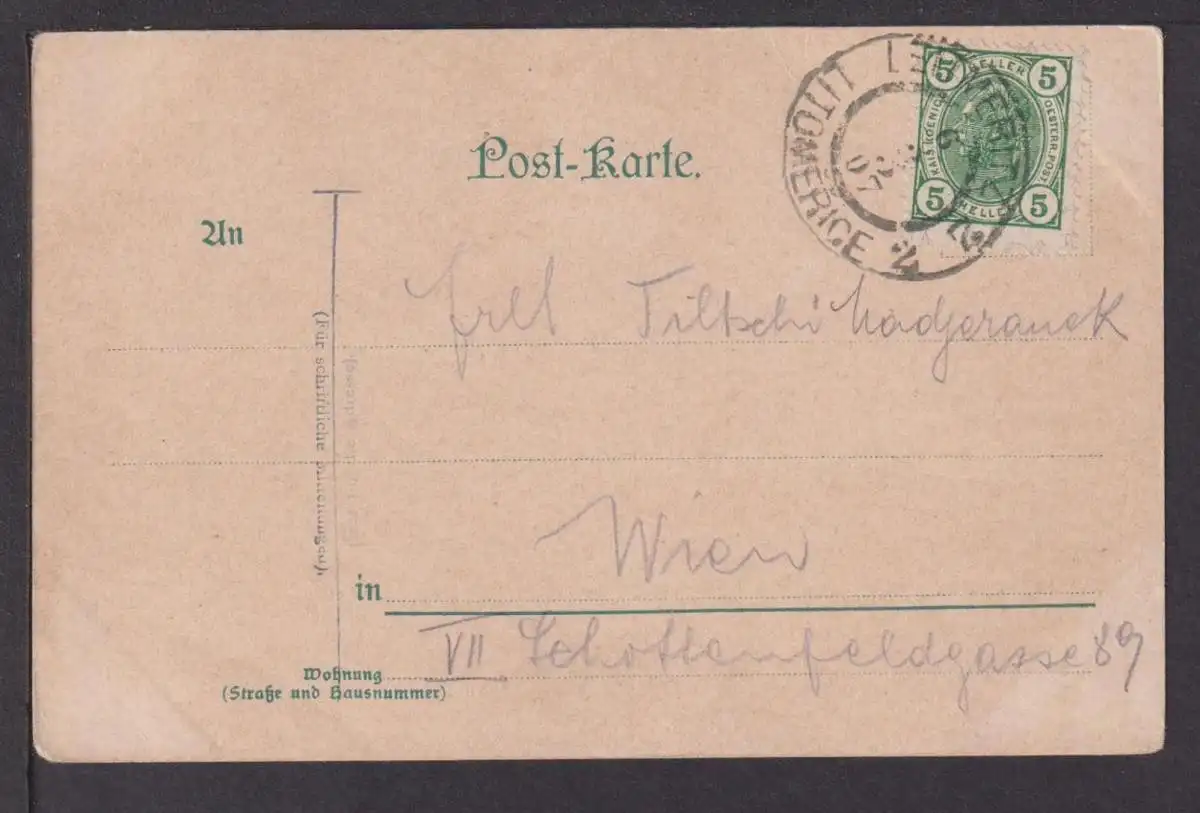 Post-Karte.
5 HELLER 5
KAIS. KOENIGL. OESTERR. POST
5 HELLER 5
LEITMERITZ 2
LITOMĚŘICE 2
07
An
(Für schriftliche Mitteilungen),
Wien
in
VII Schottenfeldgasse 89
Wohnung
(Straße und Hausnummer)